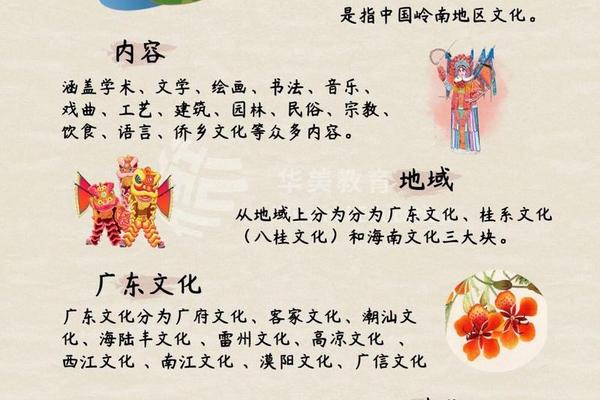 是指中国岭南地区文化。
内容
涵盖学术、文学、绘画、书法、音乐、
戏曲、工艺、建筑、园林、民俗、宗教、
饮食、语言、侨乡文化等众多内容。
华美教育
地域
从地域上分为分为广东文化、桂系文化
（八桂文化）和海南文化三大块。
广东文化
广东文化分为广府文化、客家文化、潮汕文
化、海陆丰文化 、雷州文化、高凉文化 、
西江文化 、南江文化 、漠阳文化、广信文化